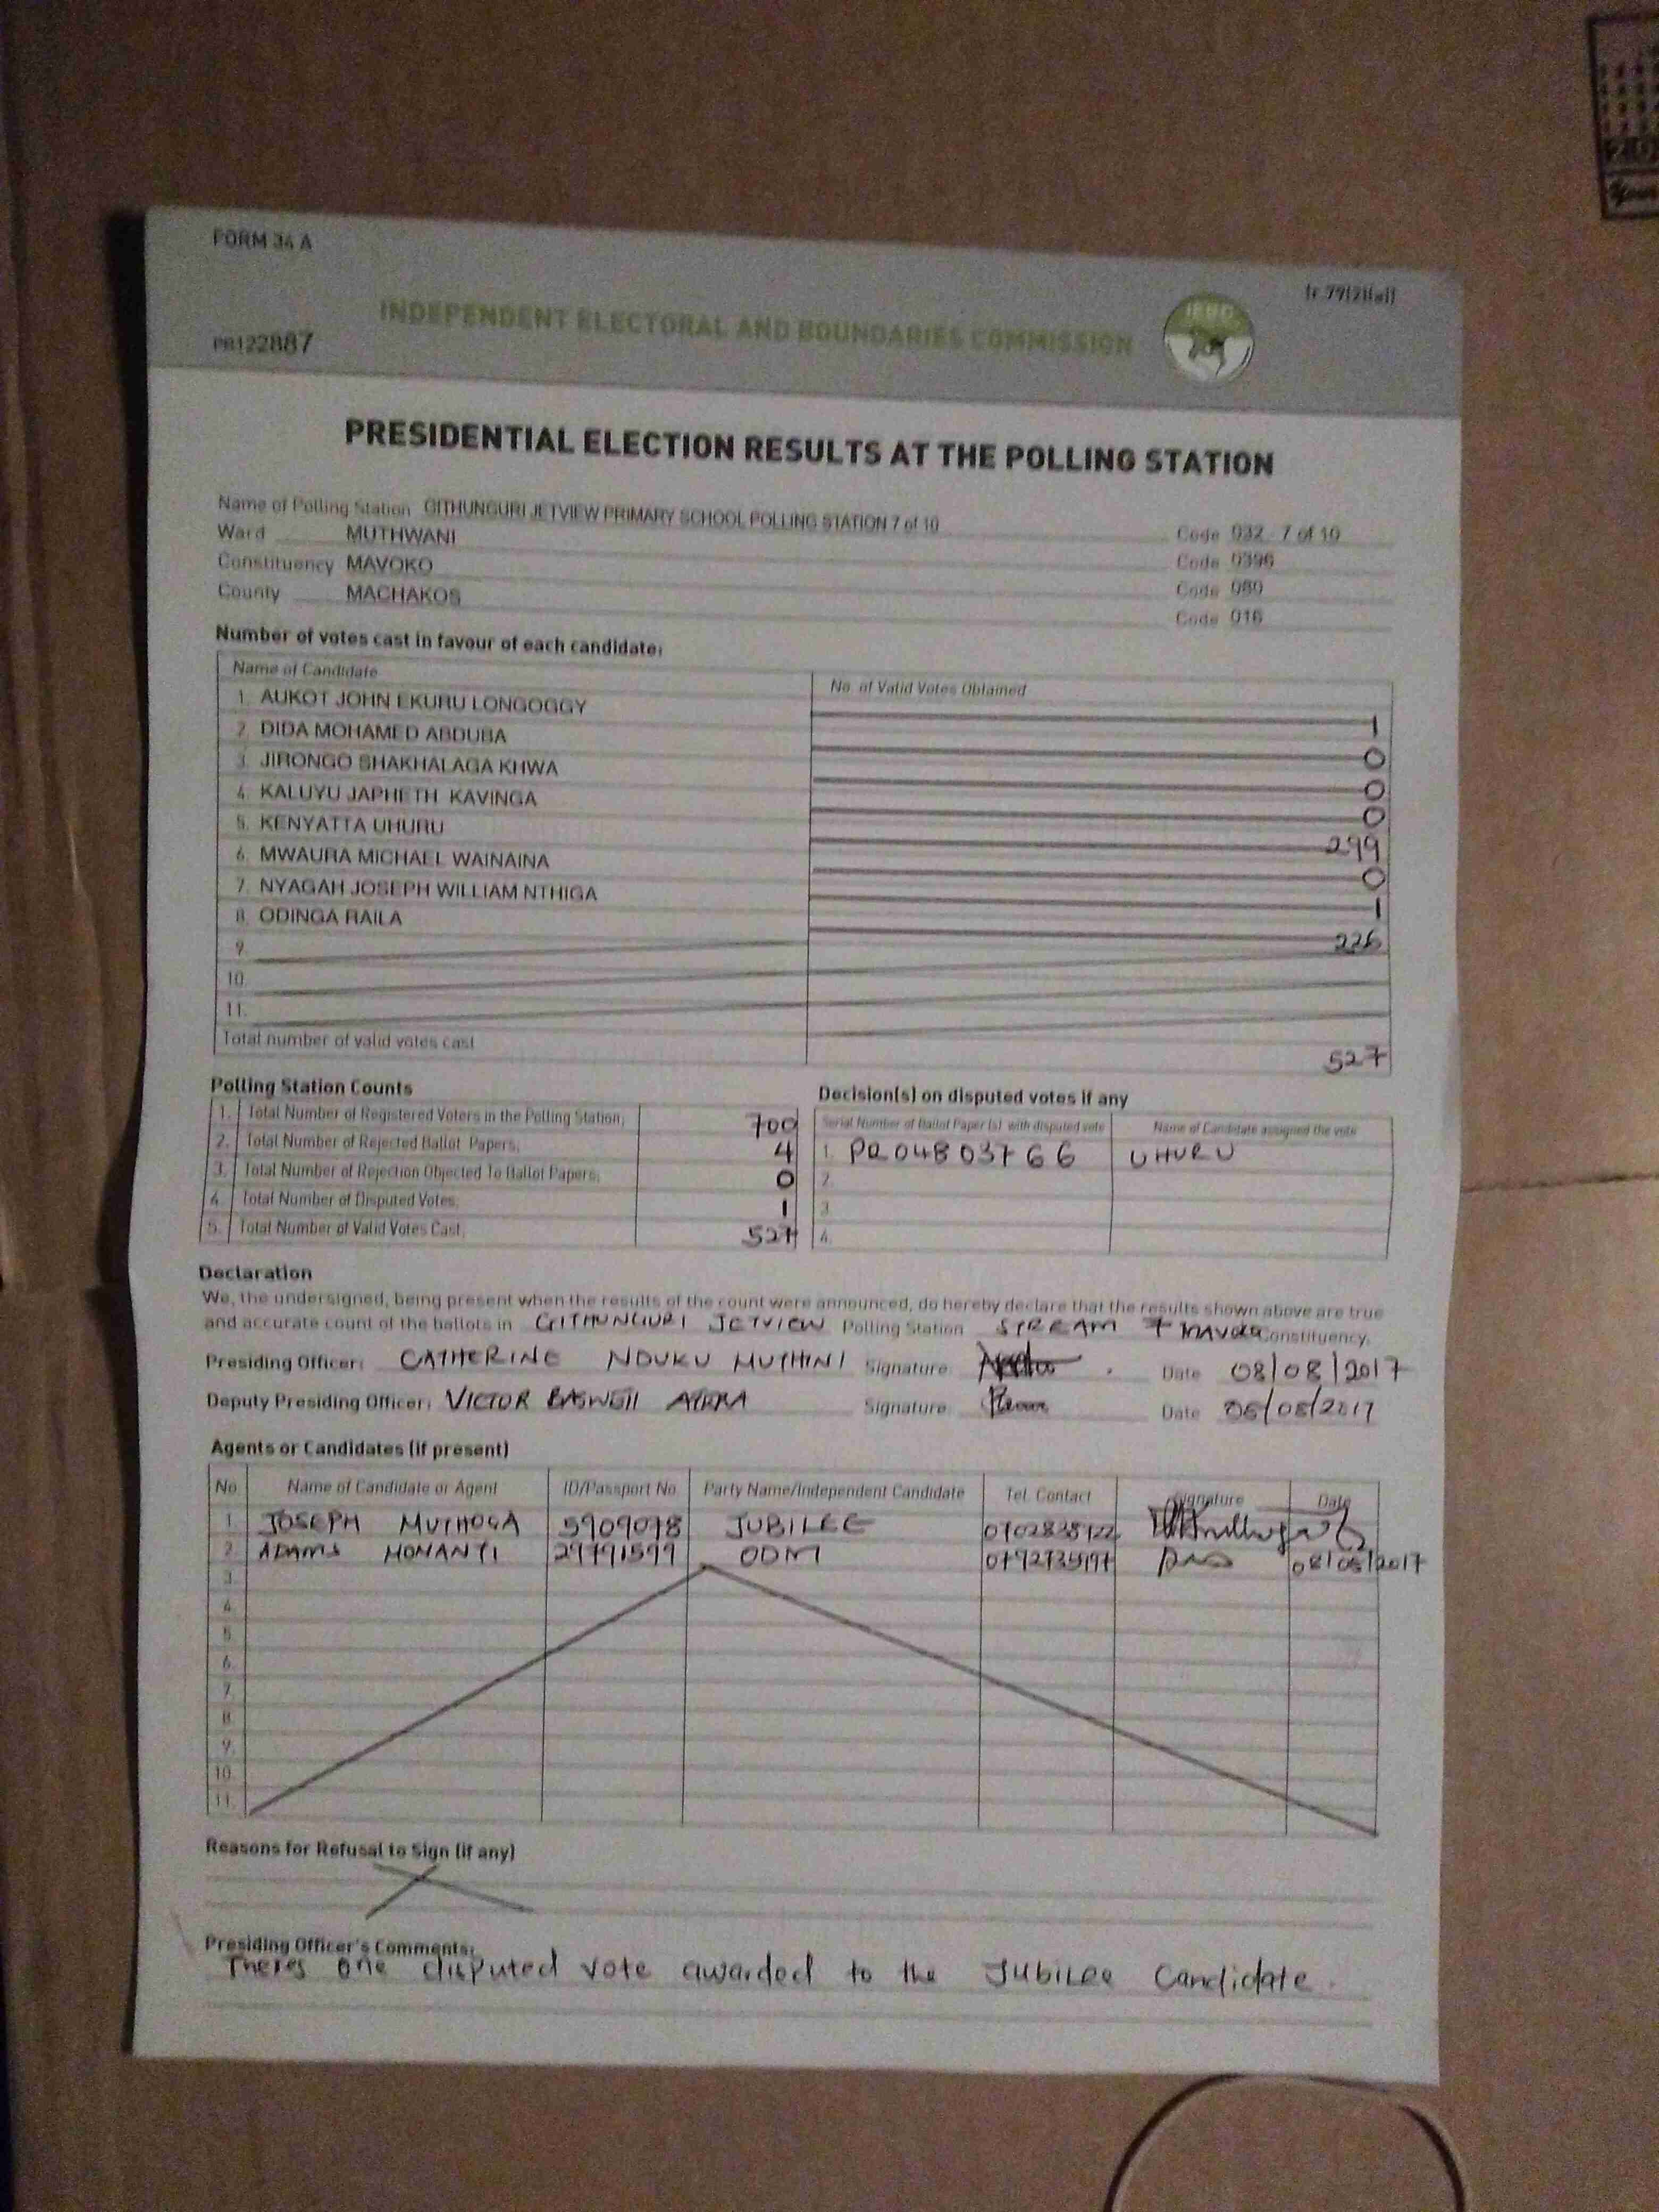 FORM 34 A
(r.79(2)(a))
INDEPENDENT ELECTORAL AND BOUNDARIES COMMISSION
IEBC
PR122887
PRESIDENTIAL ELECTION RESULTS AT THE POLLING STATION
Name of Polling Station GITHUNGURI JETVIEW PRIMARY SCHOOL POLLING STATION 7 of 10 Code 032 7 of 10
Ward MUTHWANI Code 0396
Constituency MAVOKO Code 080
County MACHAKOS Code 016
Number of votes cast in favour of each candidate:
Name of Candidate No. of Valid Votes Obtained
1. AUKOT JOHN EKURU LONGOGGY 1
2. DIDA MOHAMED ABDUBA 0
3. JIRONGO SHAKHALAGA KHWA 0
4. KALUYU JAPHETH KAVINGA 0
5. KENYATTA UHURU 299
6. MWAURA MICHAEL WAINAINA 0
7. NYAGAH JOSEPH WILLIAM NTHIGA 1
8. ODINGA RAILA 226
9.
10.
11.
Total number of valid votes cast 527
Polling Station Counts
1. Total Number of Registered Voters in the Polling Station; 700
2. Total Number of Rejected Ballot Papers; 4
3. Total Number of Rejection Objected To Ballot Papers; 0
4. Total Number of Disputed Votes; 1
5. Total Number of Valid Votes Cast; 527
Decision(s) on disputed votes if any
Serial Number of Ballot Paper (s) with disputed vote Name of Candidate assigned the vote
1. PR04803766 UHURU
2.
3.
4.
Declaration
We, the undersigned, being present when the results of the count were announced, do hereby declare that the results shown above are true
and accurate count of the ballots in GITHUNGURI JETVIEW Polling Station STREAM 7 MAVOKO Constituency.
Presiding Officer: CATHERINE NDUKU MUTHINI Signature Date 08/08/2017
Deputy Presiding Officer: VICTOR Signature Date 08/08/2017
Agents or Candidates (if present)
No. Name of Candidate or Agent ID/Passport No Party Name/Independent Candidate Tel. Contact Signature Date
1. JOSEPH MUTHOGA 5909078 JUBILEE
2. ADAMS MONANTI 29791599 ODM 08/08/2017
3.
4.
5.
6.
7.
8.
9.
10.
11.
Reasons for Refusal to Sign (if any)
Presiding Officer's Comments:
Theres one disputed vote awarded to the Jubilee Candidate.